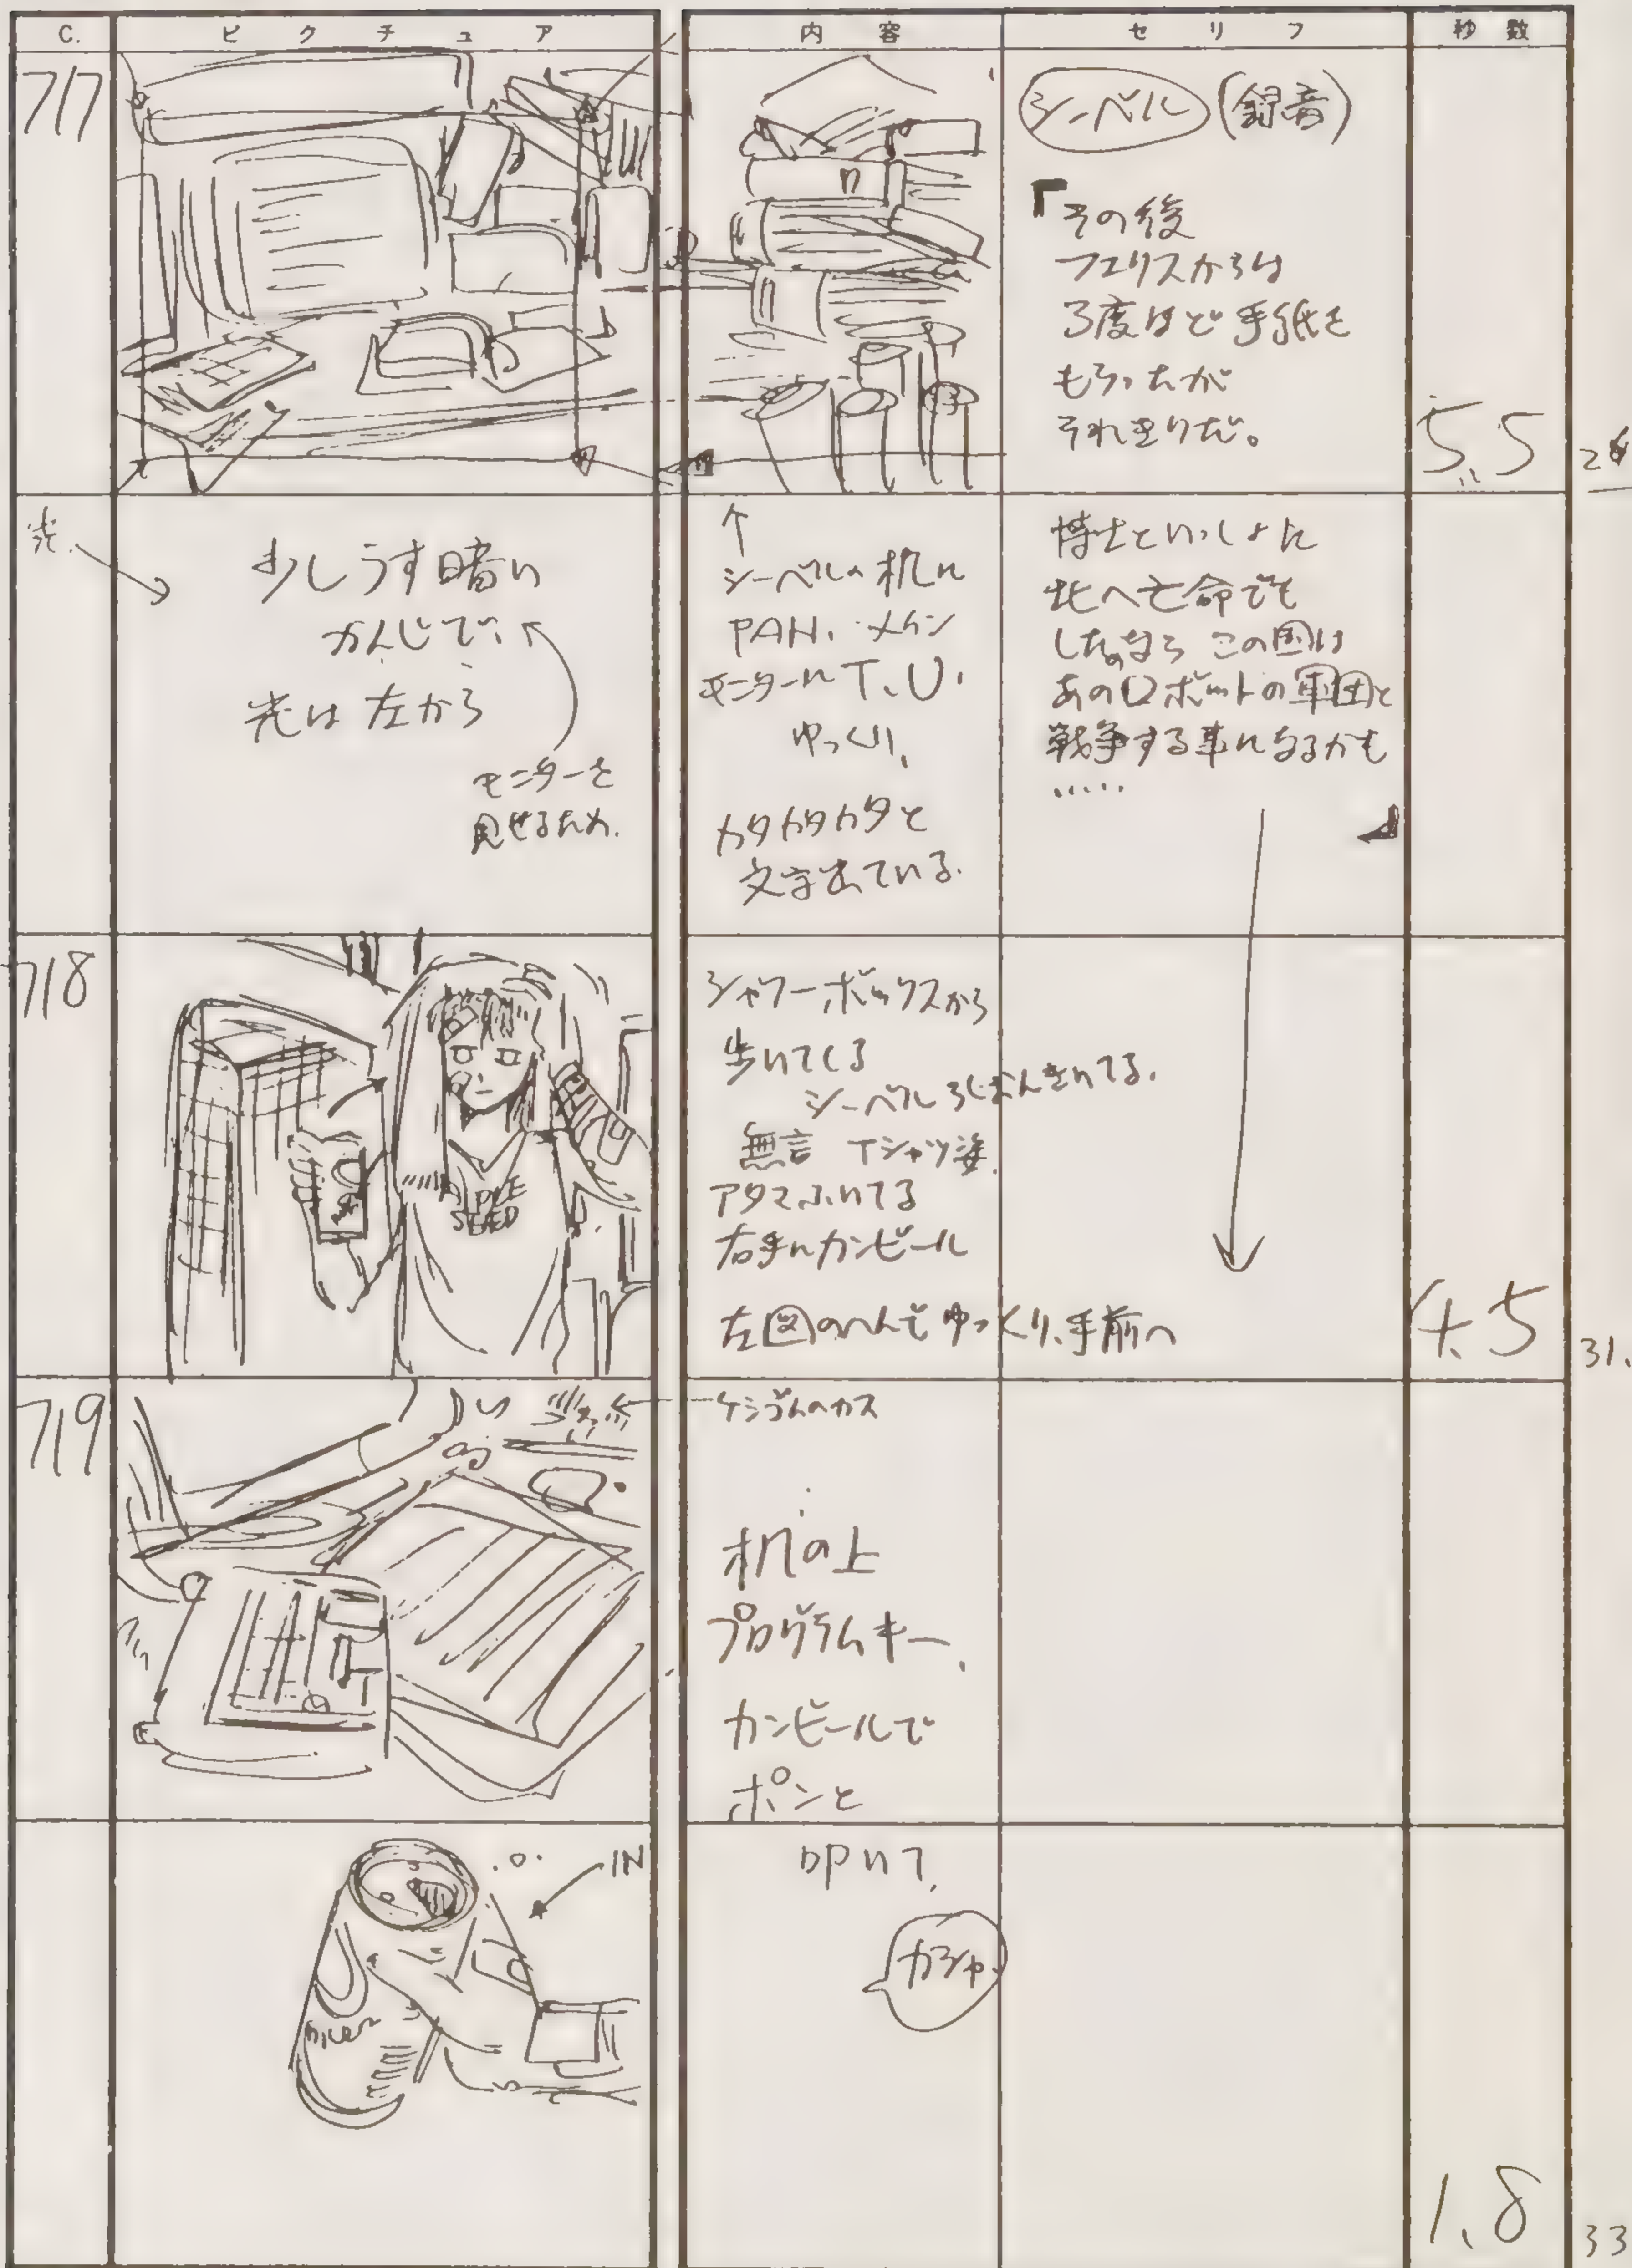 C. ピクチュア 内容 セリフ 秒数
717
シーベル (録音)
「その後
フェリスからは
3度ほど手紙を
もらったが
それきりだ。
5.5
光
少しうす暗い
かんじで、
光は左から
モニターを
見せるため.
↑
シーベルの机に
PAN. メイン
モニターにT.U.
ゆっくり、
カタカタカタと
文字出ている.
博士といっしょに
北へ亡命でも
したのなら この国は
あのロボットの軍団と
戦争する事になるかも
……」
718
シャワーボックスから
歩いてくる
シーベル
無言 Tシャツ姿.
アタマふいてる
右手にカンビール
左図のへんでゆっくり、手前へ
4.5
31.
719
ケシゴムのカス
机の上
プログラムキー、
カンビールで
ポンと
IN
叩いて、
カシャ
1.8
33